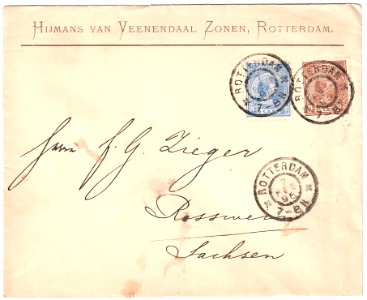 HIJMANS VAN VEENENDAAL ZONEN, ROTTERDAM.
ROTTERDAM
7-8N
ROTTERDAM
7-8N
Herrn F. G. Zieger
ROTTERDAM
7-8N
Rosswein
Sachsen